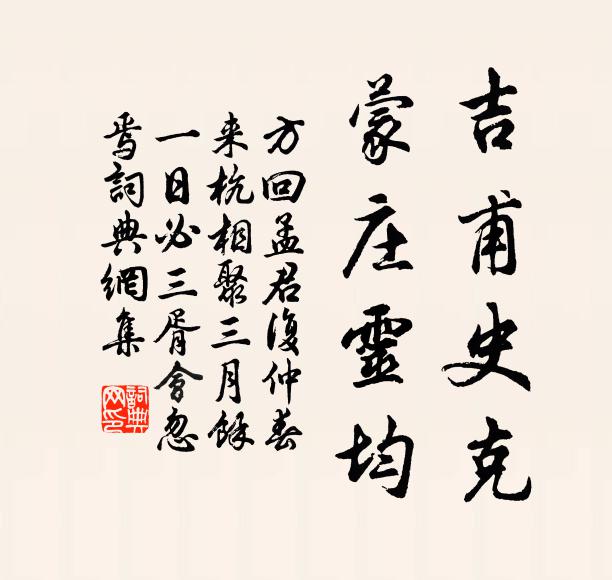 吉甫史克
蒙庄靈均
方回孟君復仲春
来杭相聚三月餘
一日必三胥會忽
焉詞典網集
詞典网印